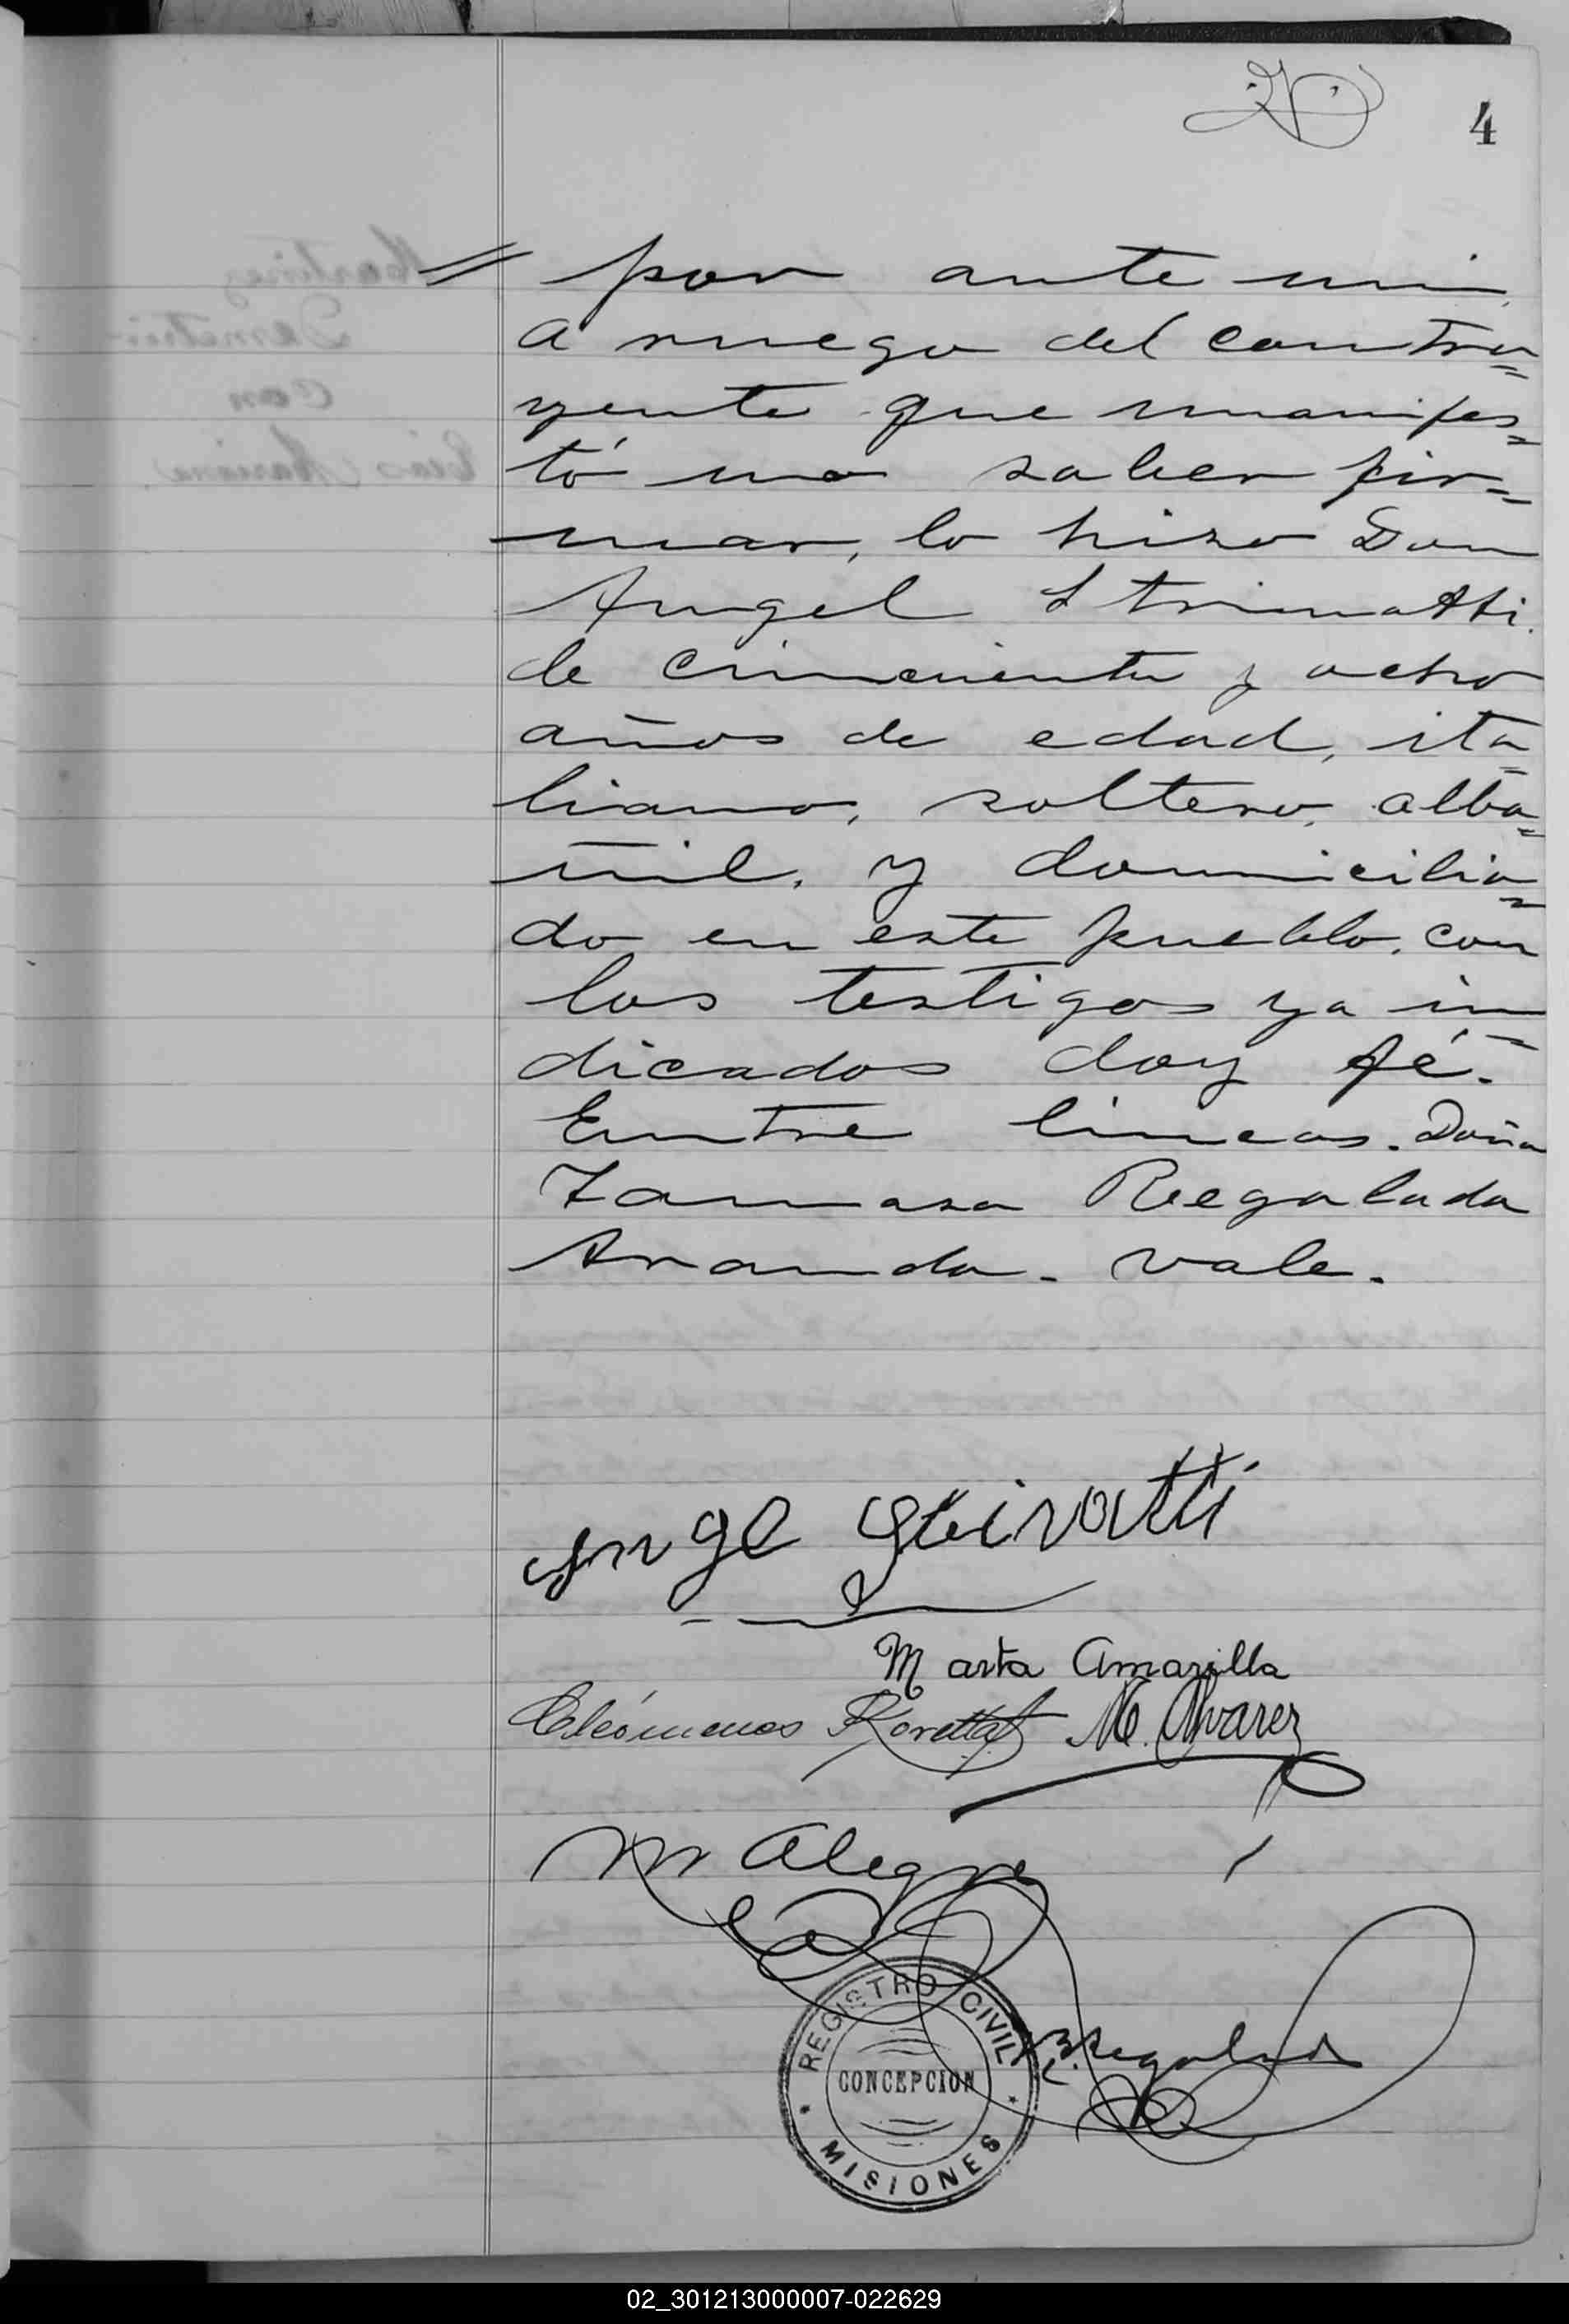 4
// por ante mi
a ruego del contra=
yente que manifes=
tó no saber fir=
mar, lo hizo Don
Angel Strinatti
de cincuenta y ocho
años de edad, ita=
liano, soltero, alba=
ñil, y domicilia=
do en este pueblo, con
los testigos ya in=
dicados doy fé.
Entre lineas. Doña
Tomasa Regalada
Aranda. vale.
Marta Amarilla
Cleómenes M. Alvarez
M Alegre
REGISTRO CIVIL
CONCEPCION
MISIONES
02_301213000007-022629